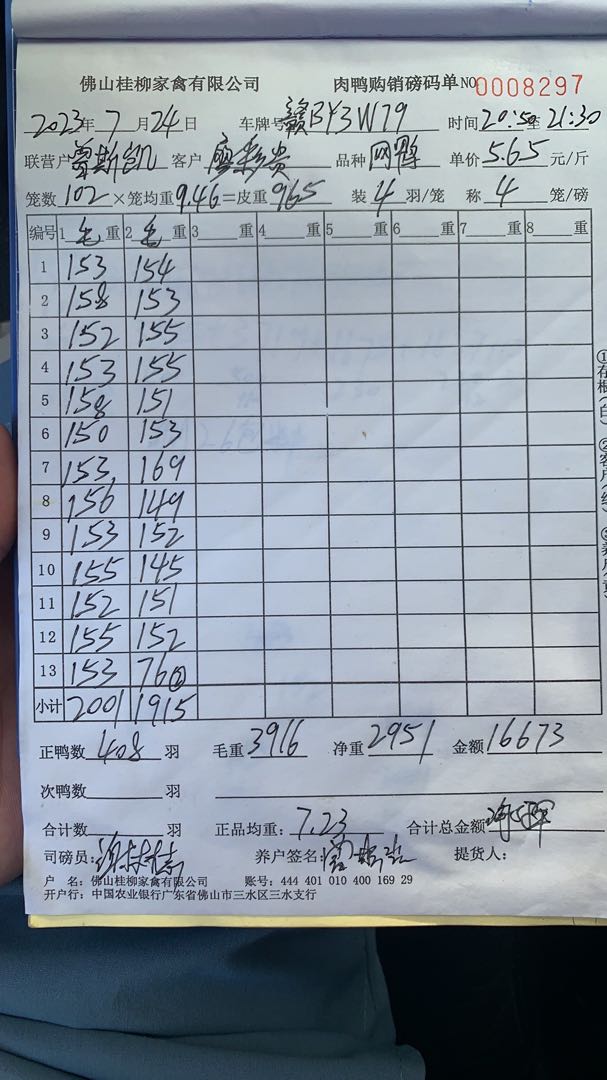 佛山桂柳家禽有限公司 肉鸭购销磅码单 NO 0008297
2023年 7月24日 车牌号 赣BY3W79 时间 20:50至21:30
联营户 曾斯凯 客户 廖彩贵 品种 网鸭 单价 5.65 元/斤
笼数 102 ×笼均重 9.46 =皮重 965 装 4 羽/笼 称 4 笼/磅
编号 1 毛 重 2 毛 重 3 重 4 重 5 重 6 重 7 重 8 重
1 153 154
2 158 153
3 152 155
4 153 155
5 158 151
6 150 153
7 153 169
8 156 149
9 153 152
10 155 145
11 152 151
12 155 152
13 153 76②
小计 2001 1915
正鸭数 408 羽 毛重 3916 净重 2951 金额 16673
次鸭数 羽
合计数 羽 正品均重: 7.23 合计总金额
司磅员: 养户签名: 提货人:
户 名: 佛山桂柳家禽有限公司 账号: 444 401 010 400 169 29
开户行: 中国农业银行广东省佛山市三水区三水支行
①存根(白) ②客户(红)